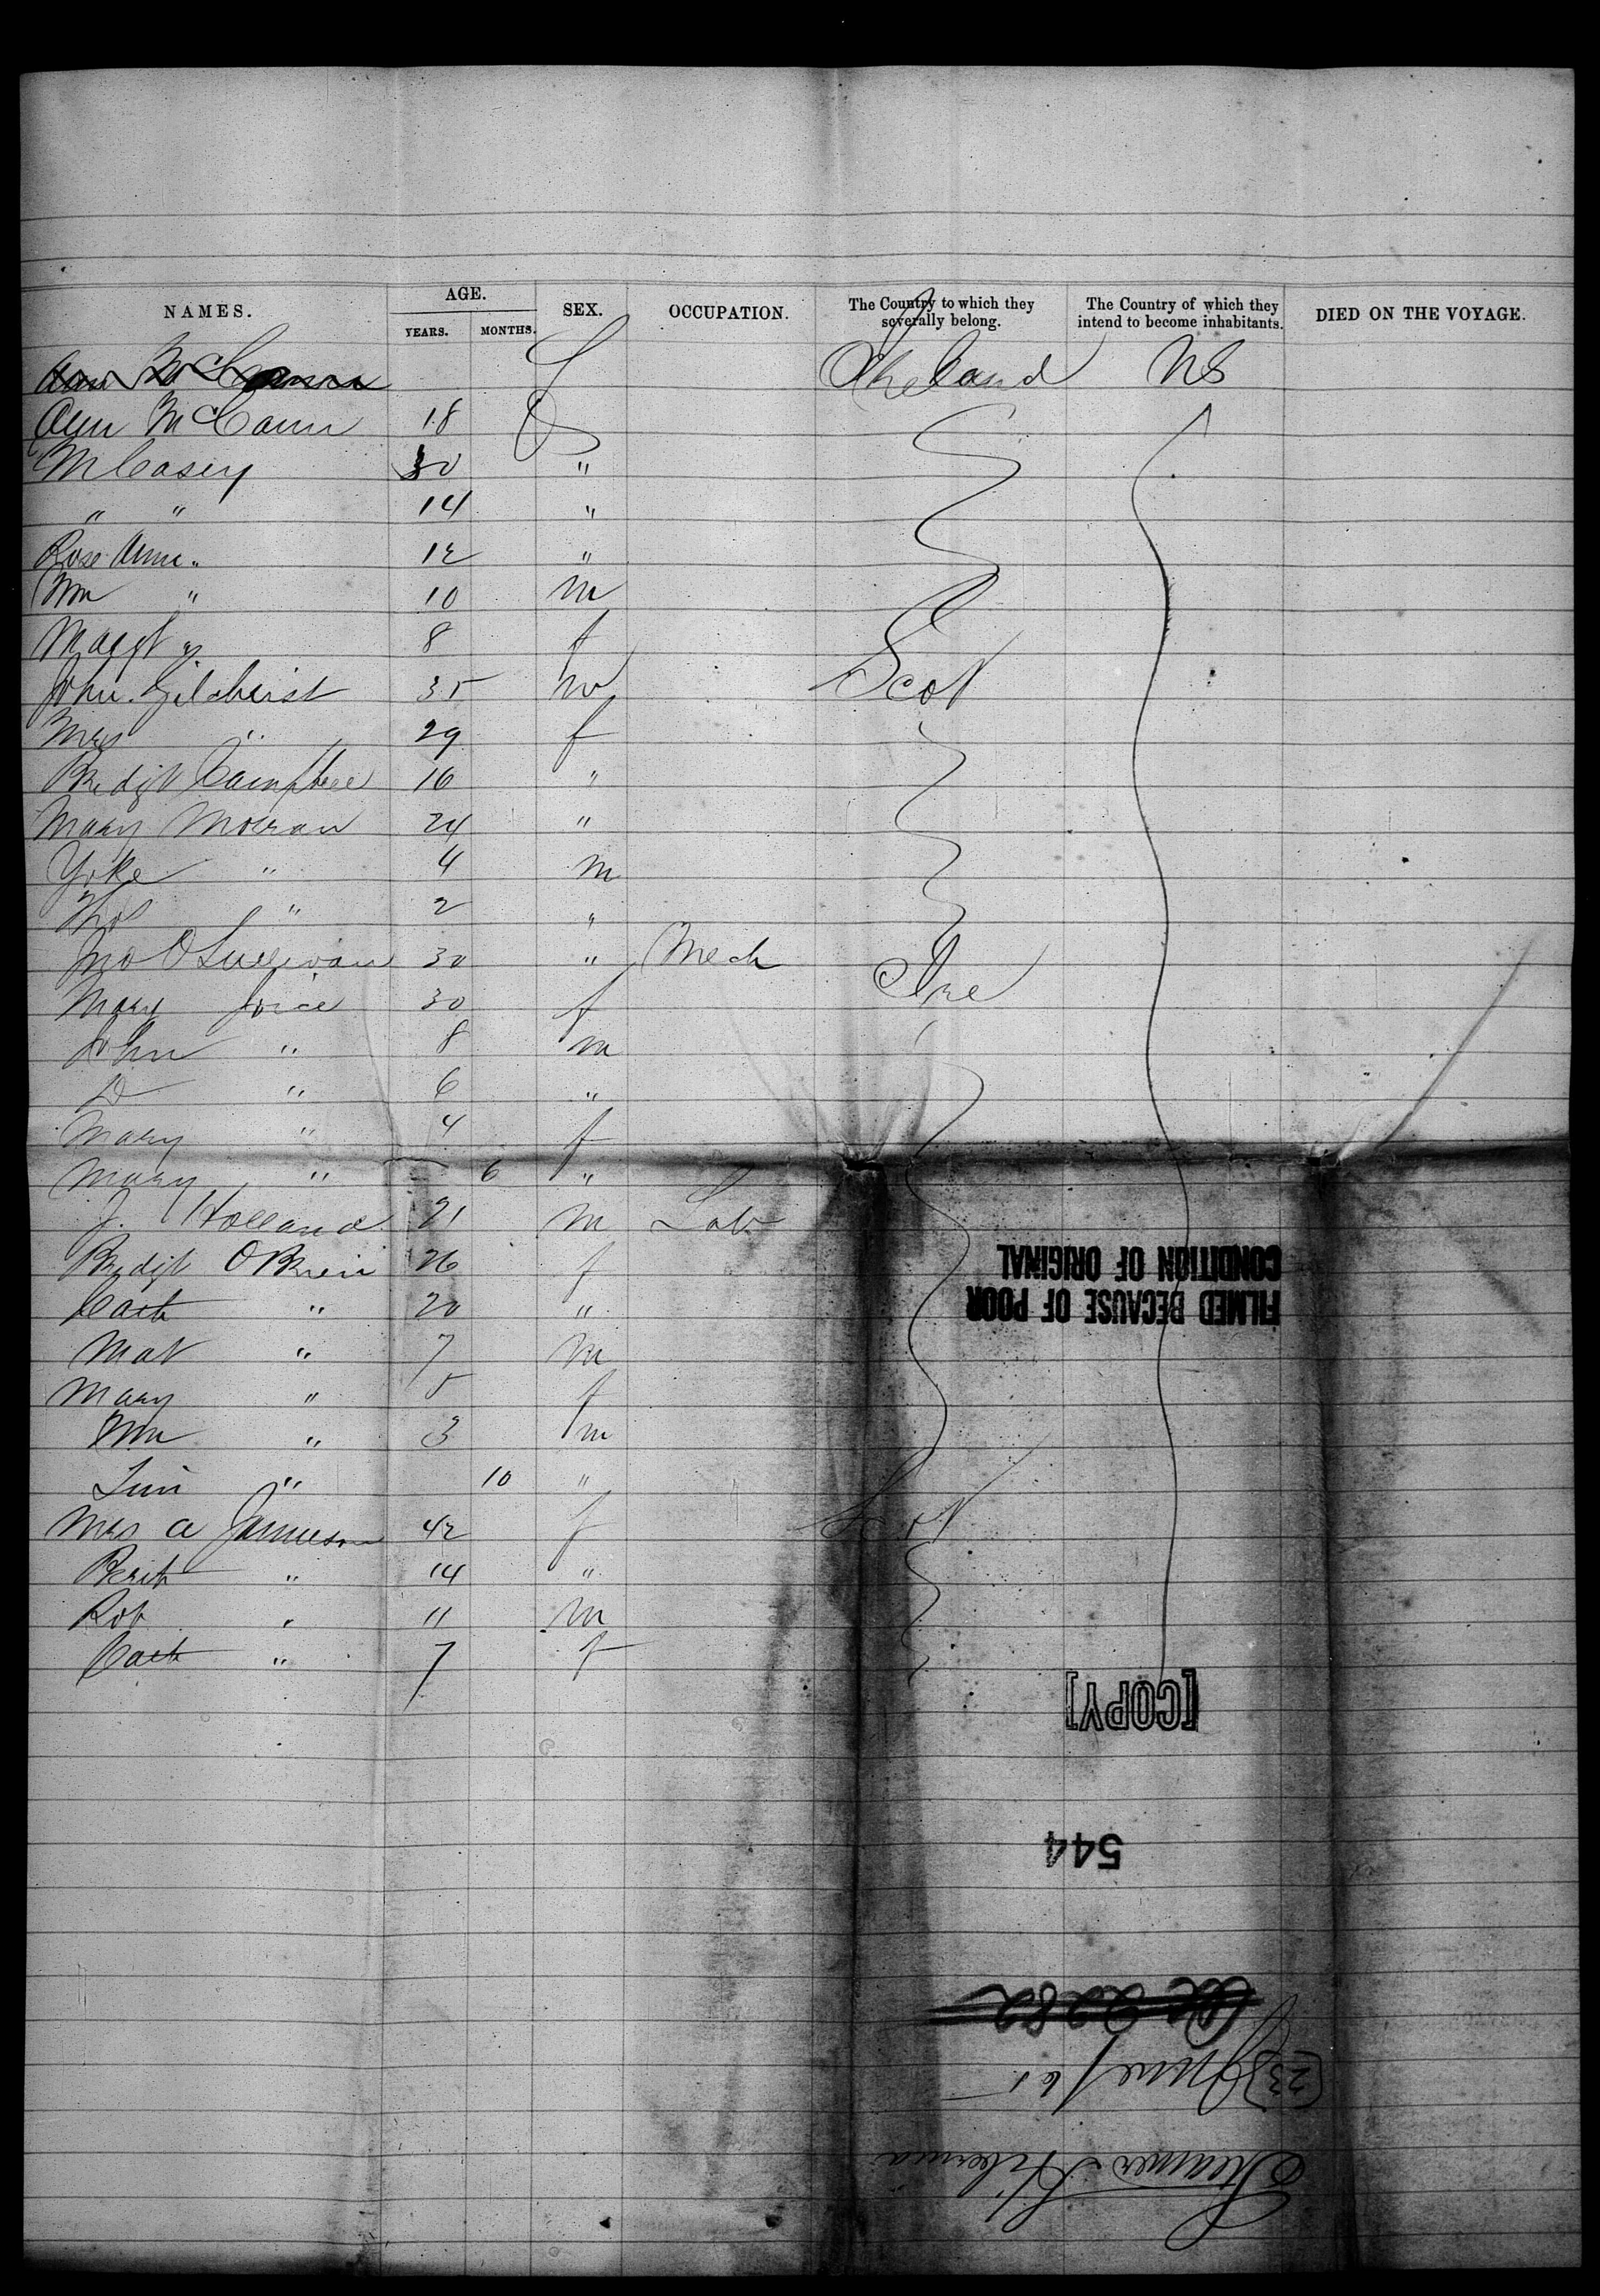 NAMES. AGE. YEARS. MONTHS. SEX. OCCUPATION. The Country to which they severally belong. The Country of which they intend to become inhabitants. DIED ON THE VOYAGE.
Ann McCann Ireland US
Ann McCann 18 f
M Casey 30 "
" " 14 "
Rose Ann " 12 "
Wm " 10 m
Magt " 8 f
John Gilchrist 35 m Scot
Mrs " 29 f
Bridgt Campbell 16 "
Mary Moran 24 "
" 4 m
Thos " 2 "
Jno O Sullivan 30 " Mech Ire
Mary Joice 30 f
John " 8 m
D " 6 "
Mary " 4 f
Mary " 6 "
J. Holland 21 m Lab
Bridgt OBrien 26 f
Cath " 20 "
Mat " 7 m
Mary " 5 f
Wm " 3 m
" 10 "
Mrs A Jamieson 42 f Scot
" 14 "
Rob " 11 m
Cath " 7 f
FILMED BECAUSE OF POOR
CONDITION OF ORIGINAL
[COPY]
544
2282
23 June / 65
Steamer Hibernia